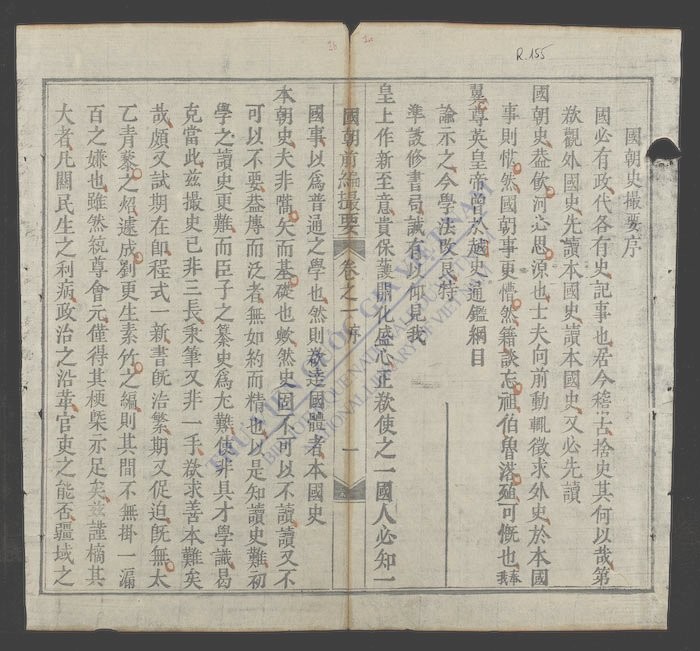 R.155
國朝史撮要序
國必有政代各有史記事也居今稽古捨史其何以哉第
欲觀外國史先讀本國史讀本國史又必先讀
國朝史葢飲河必思源也士夫向前動輒徵求外史於本國
事則惛然國朝事更懵然籍談忘祖伯魯落殖可慨也奉我
翼尊英皇帝曾於越史通鑑綱目
諭示之今學法改良特
準設修書局誠有以仰見我
皇上作新至意貴保護開化盛心正欲使之一國人必知一
國朝前編撮要 卷之一 序 一
國事以爲普通之學也然則欲達國體者本國史
本朝史夫非嚆矢而基礎也歟然史固不可以不讀讀又不
可以不要葢博而泛者無如約而精也以是知讀史難初
學之讀史更難而臣子之纂史爲尤難使非具才學識曷
克當此茲撮史已非三長秉筆又非一手欲求善本難矣
哉頗又試期在卽程式一新書旣浩繁期又促迫旣無太
乙青藜之炤速成劉更生素竹之編則其間不無掛一漏
百之嫌也雖然統尊會元僅得其梗槩示足矣茲謹摘其
大者凡關民生之利病政治之沿革官吏之能否疆域之
THƯ VIỆN QUỐC GIA VIỆT NAM
BIBLIOTHÈQUE NATIONALE DU VIETNAM
NATIONAL LIBRARY OF VIETNAM